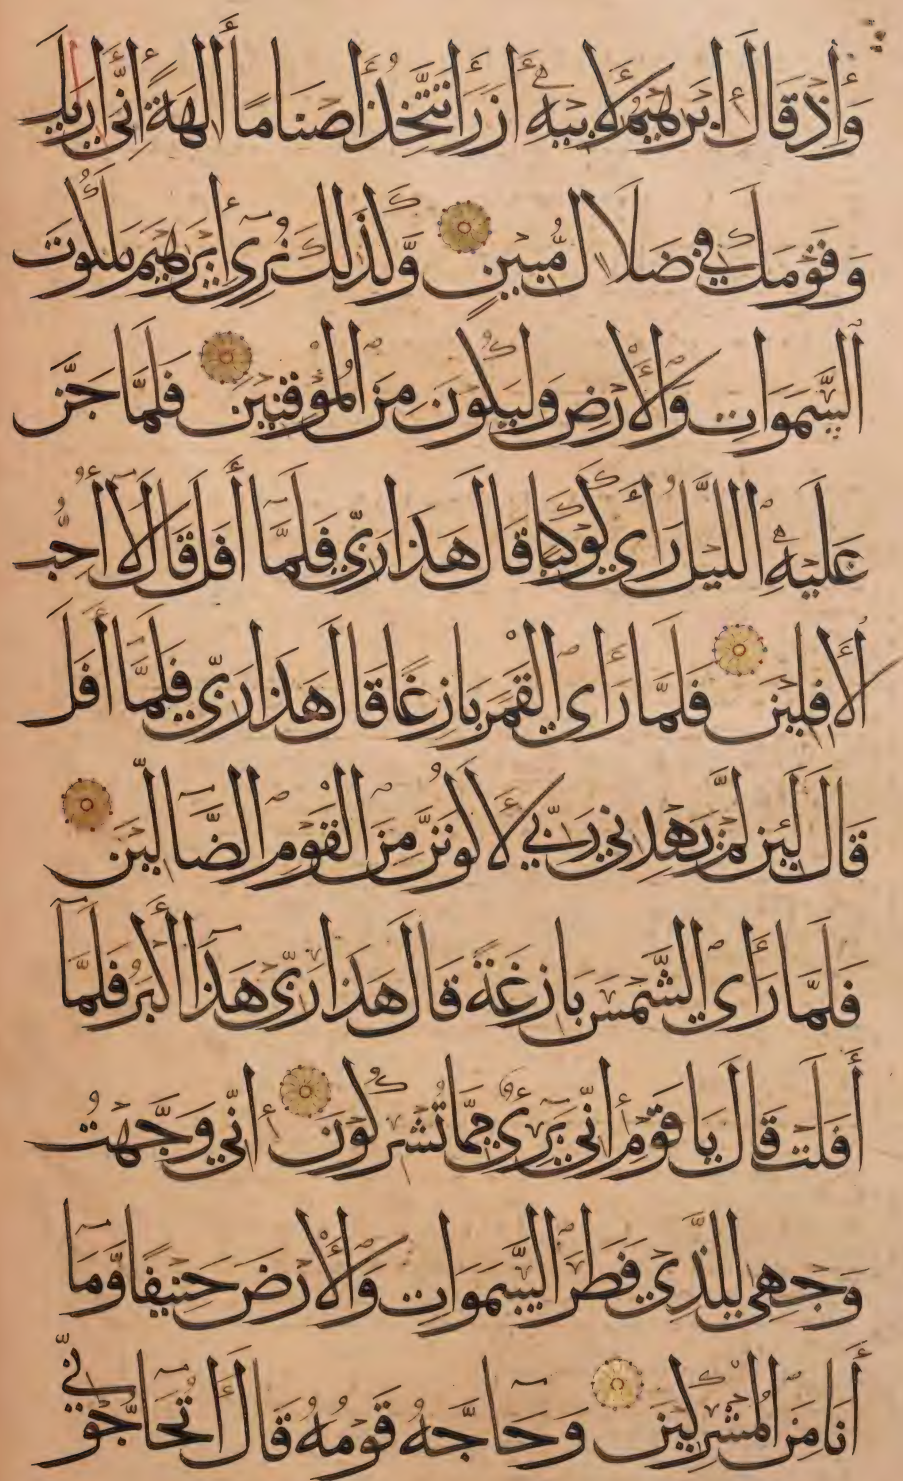 وَإِذْ قَالَ إِبْرَهِيمُ لِأَبِيهِ أَزَرَ أَتَتَّخِذُ أَصْنَامًا أَالِهَةً إِنِّي أَرَيكَ
وَقَوْمَكَ فِي ضَلَالٍ مُّبِينٍ وَكَذَلِكَ نُرِي إِبْرَهِيمَ مَلَكُوتَ
السَّمَوَاتِ وَالْأَرْضِ وَلِيَكُونَ مِنَ الْمُوقِنِينَ فَلَمَّا جَنَّ
عَلَيْهِ اللَّيْلُ رَأَي كَوْكَبًا قَالَ هَذَا رَبِّي فَلَمَّا أَفَلَ قَالَ لَا أُحِبُّ
الْأَفِلِينَ فَلَمَّا رَأَي الْقَمَرَ بَازِغًا قَالَ هَذَا رَبِّي فَلَمَّا أَفَلَ
قَالَ لَئِن لَّمْ يَهْدِنِي رَبِّي لَأَكُونَنَّ مِنَ الْقَوْمِ الضَّالِّينَ
فَلَمَّا رَأَي الشَّمْسَ بَازِغَةً قَالَ هَذَا رَبِّي هَذَا أَكْبَرُ فَلَمَّا
أَفَلَتْ قَالَ يَا قَوْمِ إِنِّي بَرِيءٌ مِمَّا تُشْرِكُونَ إِنِّي وَجَّهْتُ
وَجْهِي لِلَّذِي فَطَرَ السَّمَوَاتِ وَالْأَرْضَ حَنِيفًا وَّمَا
أَنَا مِنَ الْمُشْرِكِينَ وَحَاجَّهُ قَوْمُهُ قَالَ أَتُحَاجُّونِّي